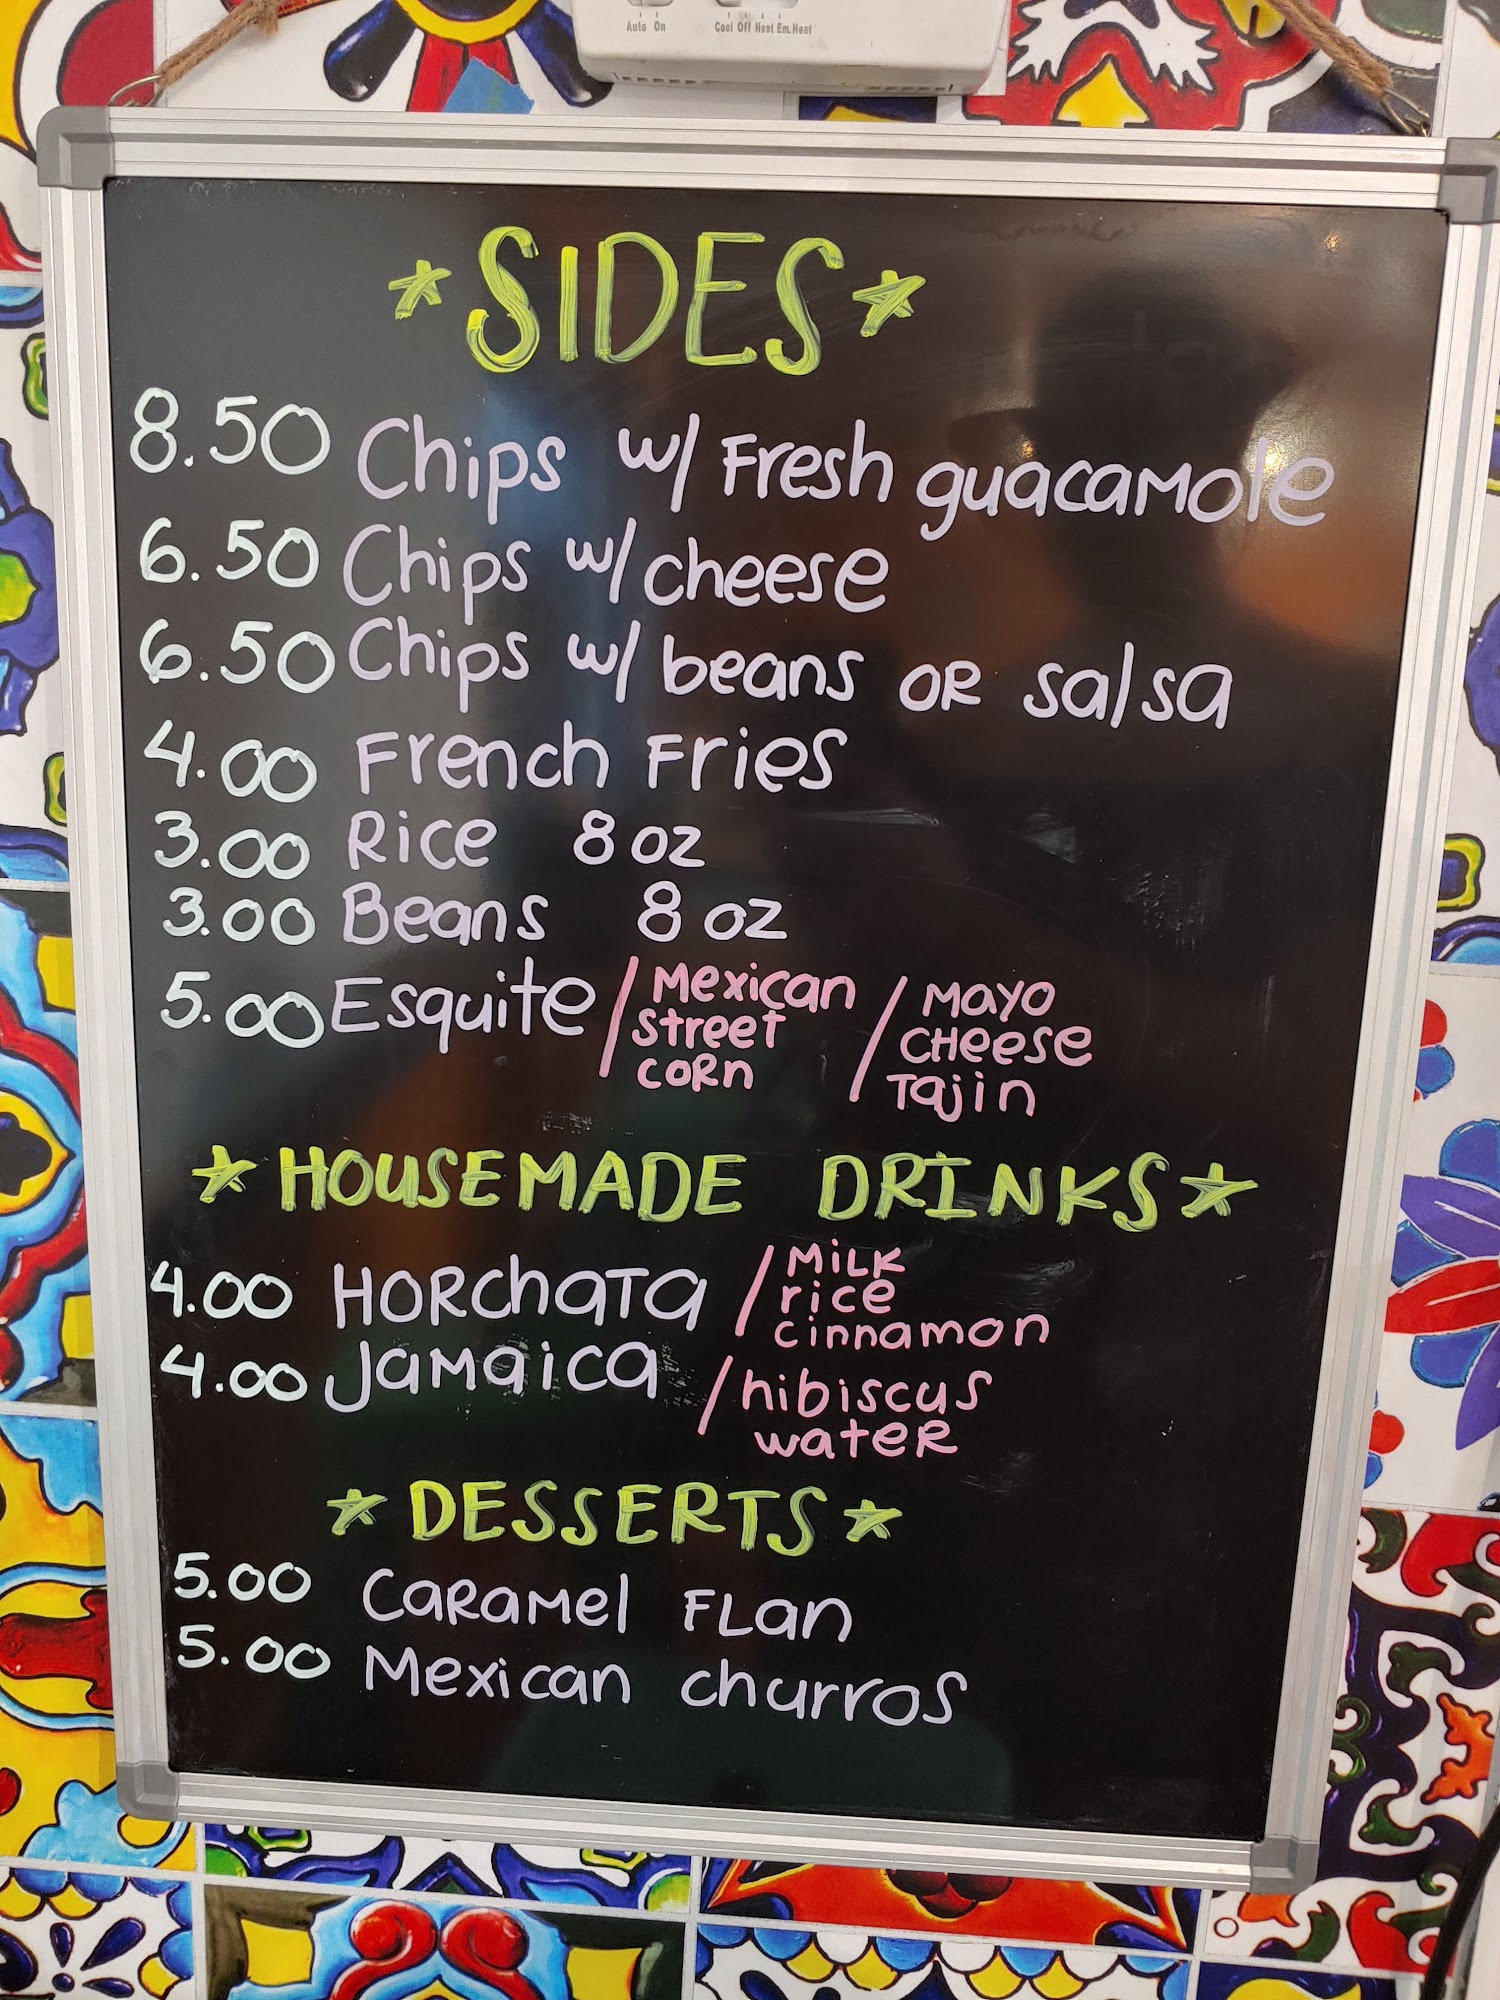 Auto On
Cool Off Heat Em.Heat
*SIDES*
8.50 Chips w/ Fresh guacamole
6.50 Chips w/ cheese
6.50 Chips w/ beans OR salsa
4.00 French Fries
3.00 Rice 8 oz
3.00 Beans 8 oz
5.00 Esquite / Mexican street corn / Mayo Cheese Tajin
*HOUSEMADE DRINKS*
4.00 HORchata / Milk rice cinnamon
4.00 Jamaica / hibiscus water
*DESSERTS*
5.00 Caramel Flan
5.00 Mexican churros